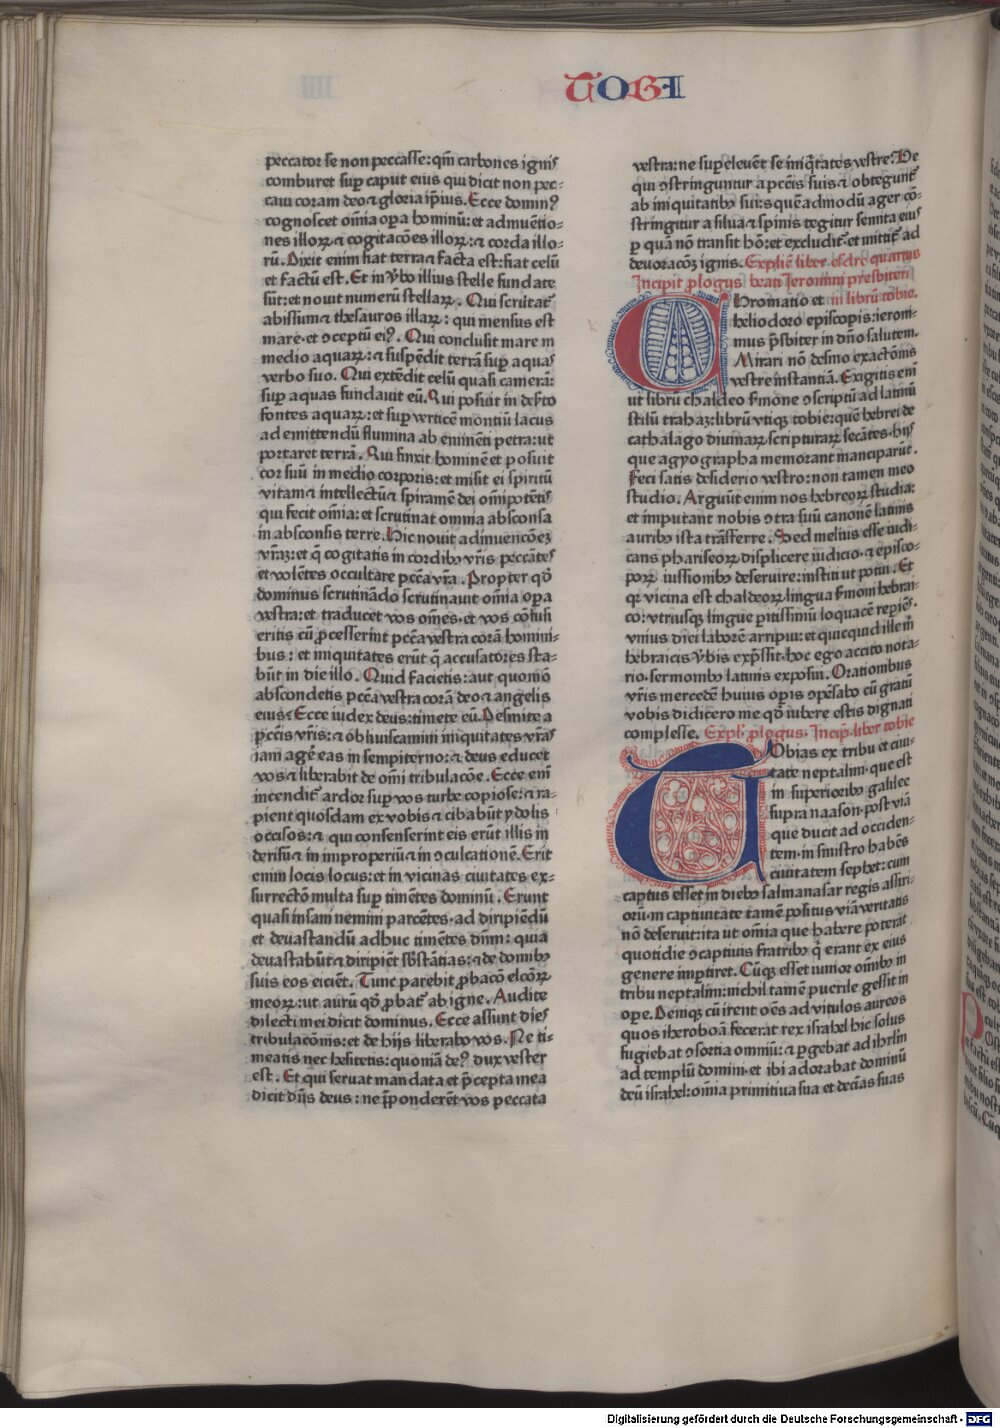 TOBI
peccator se non peccasse: qm̄ carbones ignis
comburet suꝑ caput eius qui dicit non pec⸗
caui coram deo ⁊ gloria ip̄ius. Ecce dominꝰ
cognoscet om̄ia oꝑa hominū: et adinuētio⸗
nes illoꝝ ⁊ cogitacōes illoꝝ: ⁊ corda illo⸗
rū. Dixit enim fiat terra ⁊ facta est: fiat celū
et factū est. Et in v̓bo illius stelle fundate
sūt: et nouit numerū stellaꝝ. Qui scrutat᷑
abissum ⁊ thesauros illaꝝ: qui mensus est
mare et ꝯceptū eiꝰ. Qui conclusit mare in
medio aquaꝝ: ⁊ suspēdit terrā suꝑ aquas
verbo suo. Qui extēdit celū quasi camerā:
suꝑ aquas fundauit eū. Qui posuit in des̓to
fontes aquaꝝ: et suꝑ verticē montiū lacus
ad emittendū flumina ab eminēti petra: ut
portaret terrā. Qui finxit hominē et posuit
cor suū in medio corporis: et misit ei spiritū
vitam ⁊ intellectū ⁊ spiramē dei om̄ipotētis
qui fecit om̄ia: et scrutinat omnia absconsa
in absconsis terre. Hic nouit adinuencōeꝫ
vr̄aꝫ: et q̄ cogitatis in cordibꝰ vr̄is peccātes
et volētes occultare pcc̄a vr̄a. Propter qd̓
dominus scrutinādo scrutinauit om̄ia oꝑa
vestra: et traducet vos om̄es. et vos cōfusi
eritis cū ꝓcesserint pcc̄a vestra corā homini⸗
bus: et iniquitates erūt q̄ accusatores sta⸗
būt in die illo. Quid facietis: aut quomō
abscondetis pcc̄a vestra corā deo ⁊ angelis
eius? Ecce iudex deus: timete eū. Desinite a
pccīs vr̄is: ⁊ obliuiscamini iniquitates vr̄as
iam ag̓e eas in sempiterno: ⁊ deus educet
vos ⁊ liberabit de om̄i tribulacōe. Ecce enī
incendit᷑ ardor suꝑ vos turbe copiose: ⁊ ra⸗
pient quosdam ex vobis ⁊ cibabūt ydolis
occisos: ⁊ qui consenserint eis erūt illis in
derisū ⁊ in improperiū ⁊ in ꝯculcationē. Erit
enim locis locus: et in vicinas ciuitates ex⸗
surrectō multa suꝑ timētes dominū. Erunt
quasi insani nemini parcētes. ad diripiēdū
et deuastandū adhuc timētes dn̄m: quia
deuastabūt ⁊ diripiēt sb̓stātias: ⁊ de domibꝰ
suis eos eiciēt. Tunc parebit ꝓbacō elcōꝝ
meoꝝ: ut aurū qd̓ ꝓbat᷑ ab igne. Audite
dilecti mei dicit dominus. Ecce assunt dies
tribulacōnis: et de hijs liberabo vos. Ne ti⸗
meatis nec hesitetis: quoniā deꝰ dux vester
est. Et qui seruat mandata et p̄cepta mea
dicit dn̄s deus: ne p̄ponderēt vos peccata
vestra: ne suꝑeleuēt se iniq̄tates vestre. Ve
qui ꝯstringuntur a pccīs suis ⁊ obtegunt᷑
ab iniquitatibꝰ suis quēadmodū ager cō⸗
stringitur a silua ⁊ spinis tegitur semita eius
ꝑ quā nō transit hō: et excludit᷑ et mittit᷑ ad
deuoracōꝫ ignis. Explic̄ liber esdre quartus
Incipit ꝓlogus beati Jeronimi presbiteri
in librū tobie.
Chromatio et
heliodoro episcopis: ieroni⸗
mus p̄sbiter in dn̄o salutem.
Mirari nō desino exactōnis
vestre instantiā. Exigitis enī
ut librū chaldeo s̓mone ꝯscriptū ad latinū
stilū trahaꝫ: librū vtiqꝫ tobie: quē hebrei de
cathalago diuinaꝝ scripturaꝝ secātes. hijs
que agyographa memorant manciparūt.
Feci satis desiderio vestro: non tamen meo
studio. Arguūt enim nos hebreoꝝ studia:
et imputant nobis ꝯtra suū canonē latinis
auribꝰ ista trāsferre. Sed melius esse iudi⸗
cans phariseoꝝ displicere iudicio. ⁊ episco⸗
poꝝ iussionibꝰ deseruire: institi ut potui. Et
qꝛ vicina est chaldeoꝝ lingua s̓moni hebrai⸗
co: vtriusqꝫ lingue ꝑitissimū loquacē reꝑiēs.
vnius diei laborē arripui: et quicquid ille m̄
hebraicis v̓bis exp̄ssit. hoc ego accito nota⸗
rio. sermonibꝰ latinis exposui. Orationibus
vr̄is mercedē huius oꝑis ꝯpēsabo cū gratū
vobis didicero me qd̓ iubere estis dignati
complesse. Expl̓. ꝓlogus. Incip̄. liber tobie
Tobias ex tribu et ciui⸗
tate neptalim. que est
in superioribꝰ galilee
supra naason. post viā
que ducit ad occiden⸗
tem. in sinistro habēs
ciuitatem sephet: cum
captus esset in diebꝰ salmanasar regis assiri⸗
orū. in captiuitate tamē positus viā veritatis
nō deseruit: ita ut om̄ia que habere poterat
quotidie ꝯcaptiuis fratribꝰ q̄ erant ex eius
genere imꝑtiret. Cūqꝫ esset iunior om̄ibꝰ in
tribu neptalim: nichil tamē puerile gessit in
opere. Deniqꝫ cū irent oēs ad vitulos aureos
quos iheroboā fecerat rex israhel hic solus
fugiebat ꝯsortia omniū: ⁊ ꝑgebat ad ihrl̄m
ad templū domini. et ibi adorabat dominū
deū israhel: om̄ia primitiua sua et decīas suas
Digitalisierung gefördert durch die Deutsche Forschungsgemeinschaft - DFG